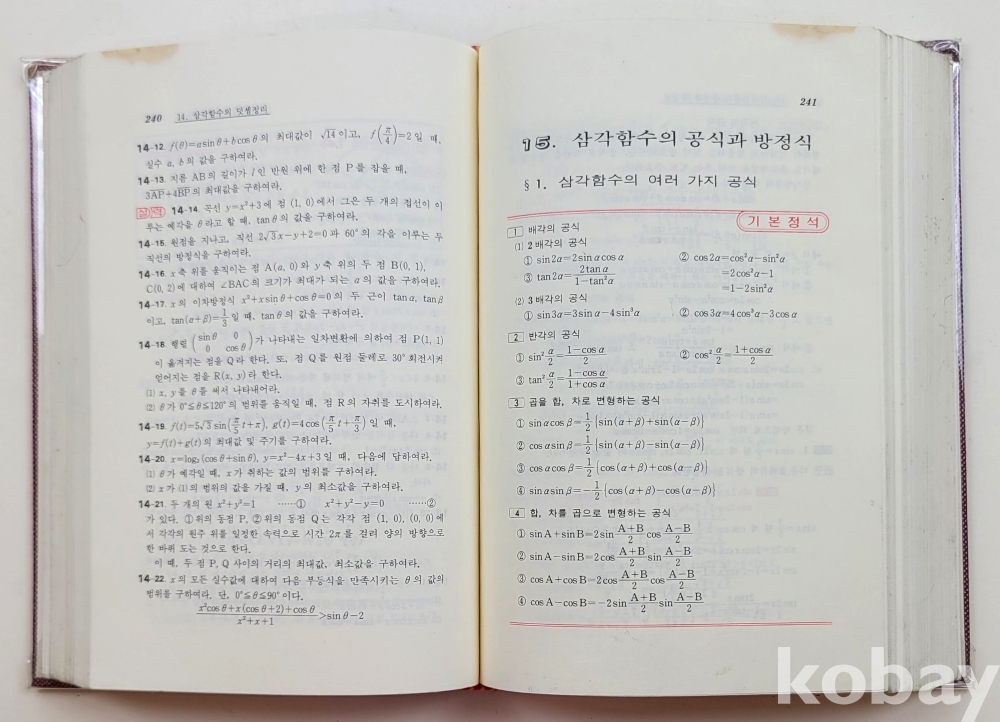 240 14. 삼각함수의 덧셈정리
14-12. f(θ)=asinθ+bcosθ의 최대값이 √14이고, f(π/4)=2일 때,
실수 a, b의 값을 구하여라.
14-13. 지름 AB의 길이가 l인 반원 위에 한 점 P를 잡을 때,
3AP+4BP의 최대값을 구하여라.
14-14. 곡선 y=x²+3에 점 (1, 0)에서 그은 두 개의 접선이 이
루는 예각을 θ라고 할 때, tanθ의 값을 구하여라.
14-15. 원점을 지나고, 직선 2√3x-y+2=0과 60°의 각을 이루는 두
직선의 방정식을 구하여라.
14-16. x축 위를 움직이는 점 A(a, 0)와 y축 위의 두 점 B(0, 1),
C(0, 2)에 대하여 ∠BAC의 크기가 최대가 되는 a의 값을 구하여라.
14-17. x의 이차방정식 x²+xsinθ+cosθ=0의 두 근이 tanα, tanβ
이고, tan(α+β)=1/3일 때, tanθ의 값을 구하여라.
14-18. 행렬 (sinθ 0
0 cosθ)가 나타내는 일차변환에 의하여 점 P(1, 1)
이 옮겨지는 점을 Q라 한다. 또, 점 Q를 원점 둘레로 30° 회전시켜
얻어지는 점을 R(x, y)라 한다.
⑴ x, y를 θ를 써서 나타내어라.
⑵ θ가 0°≦θ≦120°의 범위를 움직일 때, 점 R의 자취를 도시하여라.
14-19. f(t)=5√3sin(π/5 t+π), g(t)=4cos(π/5 t+π/3)일 때,
y=f(t)+g(t)의 최대값 및 주기를 구하여라.
14-20. x=log₂(cosθ+sinθ), y=x²-4x+3일 때, 다음에 답하여라.
⑴ θ가 예각일 때, x가 취하는 값의 범위를 구하여라.
⑵ x가 ⑴의 범위의 값을 가질 때, y의 최소값을 구하여라.
14-21. 두 개의 원 x²+y²=1 ……① x²+y²-y=0 ……②
가 있다. ①위의 동점 P, ②위의 동점 Q는 각각 점 (1, 0), (0, 0)에
서 각각의 원주 위를 일정한 속력으로 시간 2π를 걸려 양의 방향으로
한 바퀴 도는 것으로 한다.
이 때, 두 점 P, Q 사이의 거리의 최대값, 최소값을 구하여라.
14-22. x의 모든 실수값에 대하여 다음 부등식을 만족시키는 θ의 값의
범위를 구하여라. 단, 0°≦θ≦90°이다.
(x²cosθ+x(cosθ+2)+cosθ)/(x²+x+1)>sinθ-2
241
15. 삼각함수의 공식과 방정식
§1. 삼각함수의 여러 가지 공식
기본정석
1 배각의 공식
⑴ 2배각의 공식
① sin2α=2sinαcosα ② cos2α=cos²α-sin²α
③ tan2α=2tanα/(1-tan²α) =2cos²α-1
=1-2sin²α
⑵ 3배각의 공식
① sin3α=3sinα-4sin³α ② cos3α=4cos³α-3cosα
2 반각의 공식
① sin²α/2=(1-cosα)/2 ② cos²α/2=(1+cosα)/2
③ tan²α/2=(1-cosα)/(1+cosα)
3 곱을 합, 차로 변형하는 공식
① sinαcosβ=1/2{sin(α+β)+sin(α-β)}
② cosαsinβ=1/2{sin(α+β)-sin(α-β)}
③ cosαcosβ=1/2{cos(α+β)+cos(α-β)}
④ sinαsinβ=-1/2{cos(α+β)-cos(α-β)}
4 합, 차를 곱으로 변형하는 공식
① sinA+sinB=2sin (A+B)/2 cos (A-B)/2
② sinA-sinB=2cos (A+B)/2 sin (A-B)/2
③ cosA+cosB=2cos (A+B)/2 cos (A-B)/2
④ cosA-cosB=-2sin (A+B)/2 sin (A-B)/2
kobay